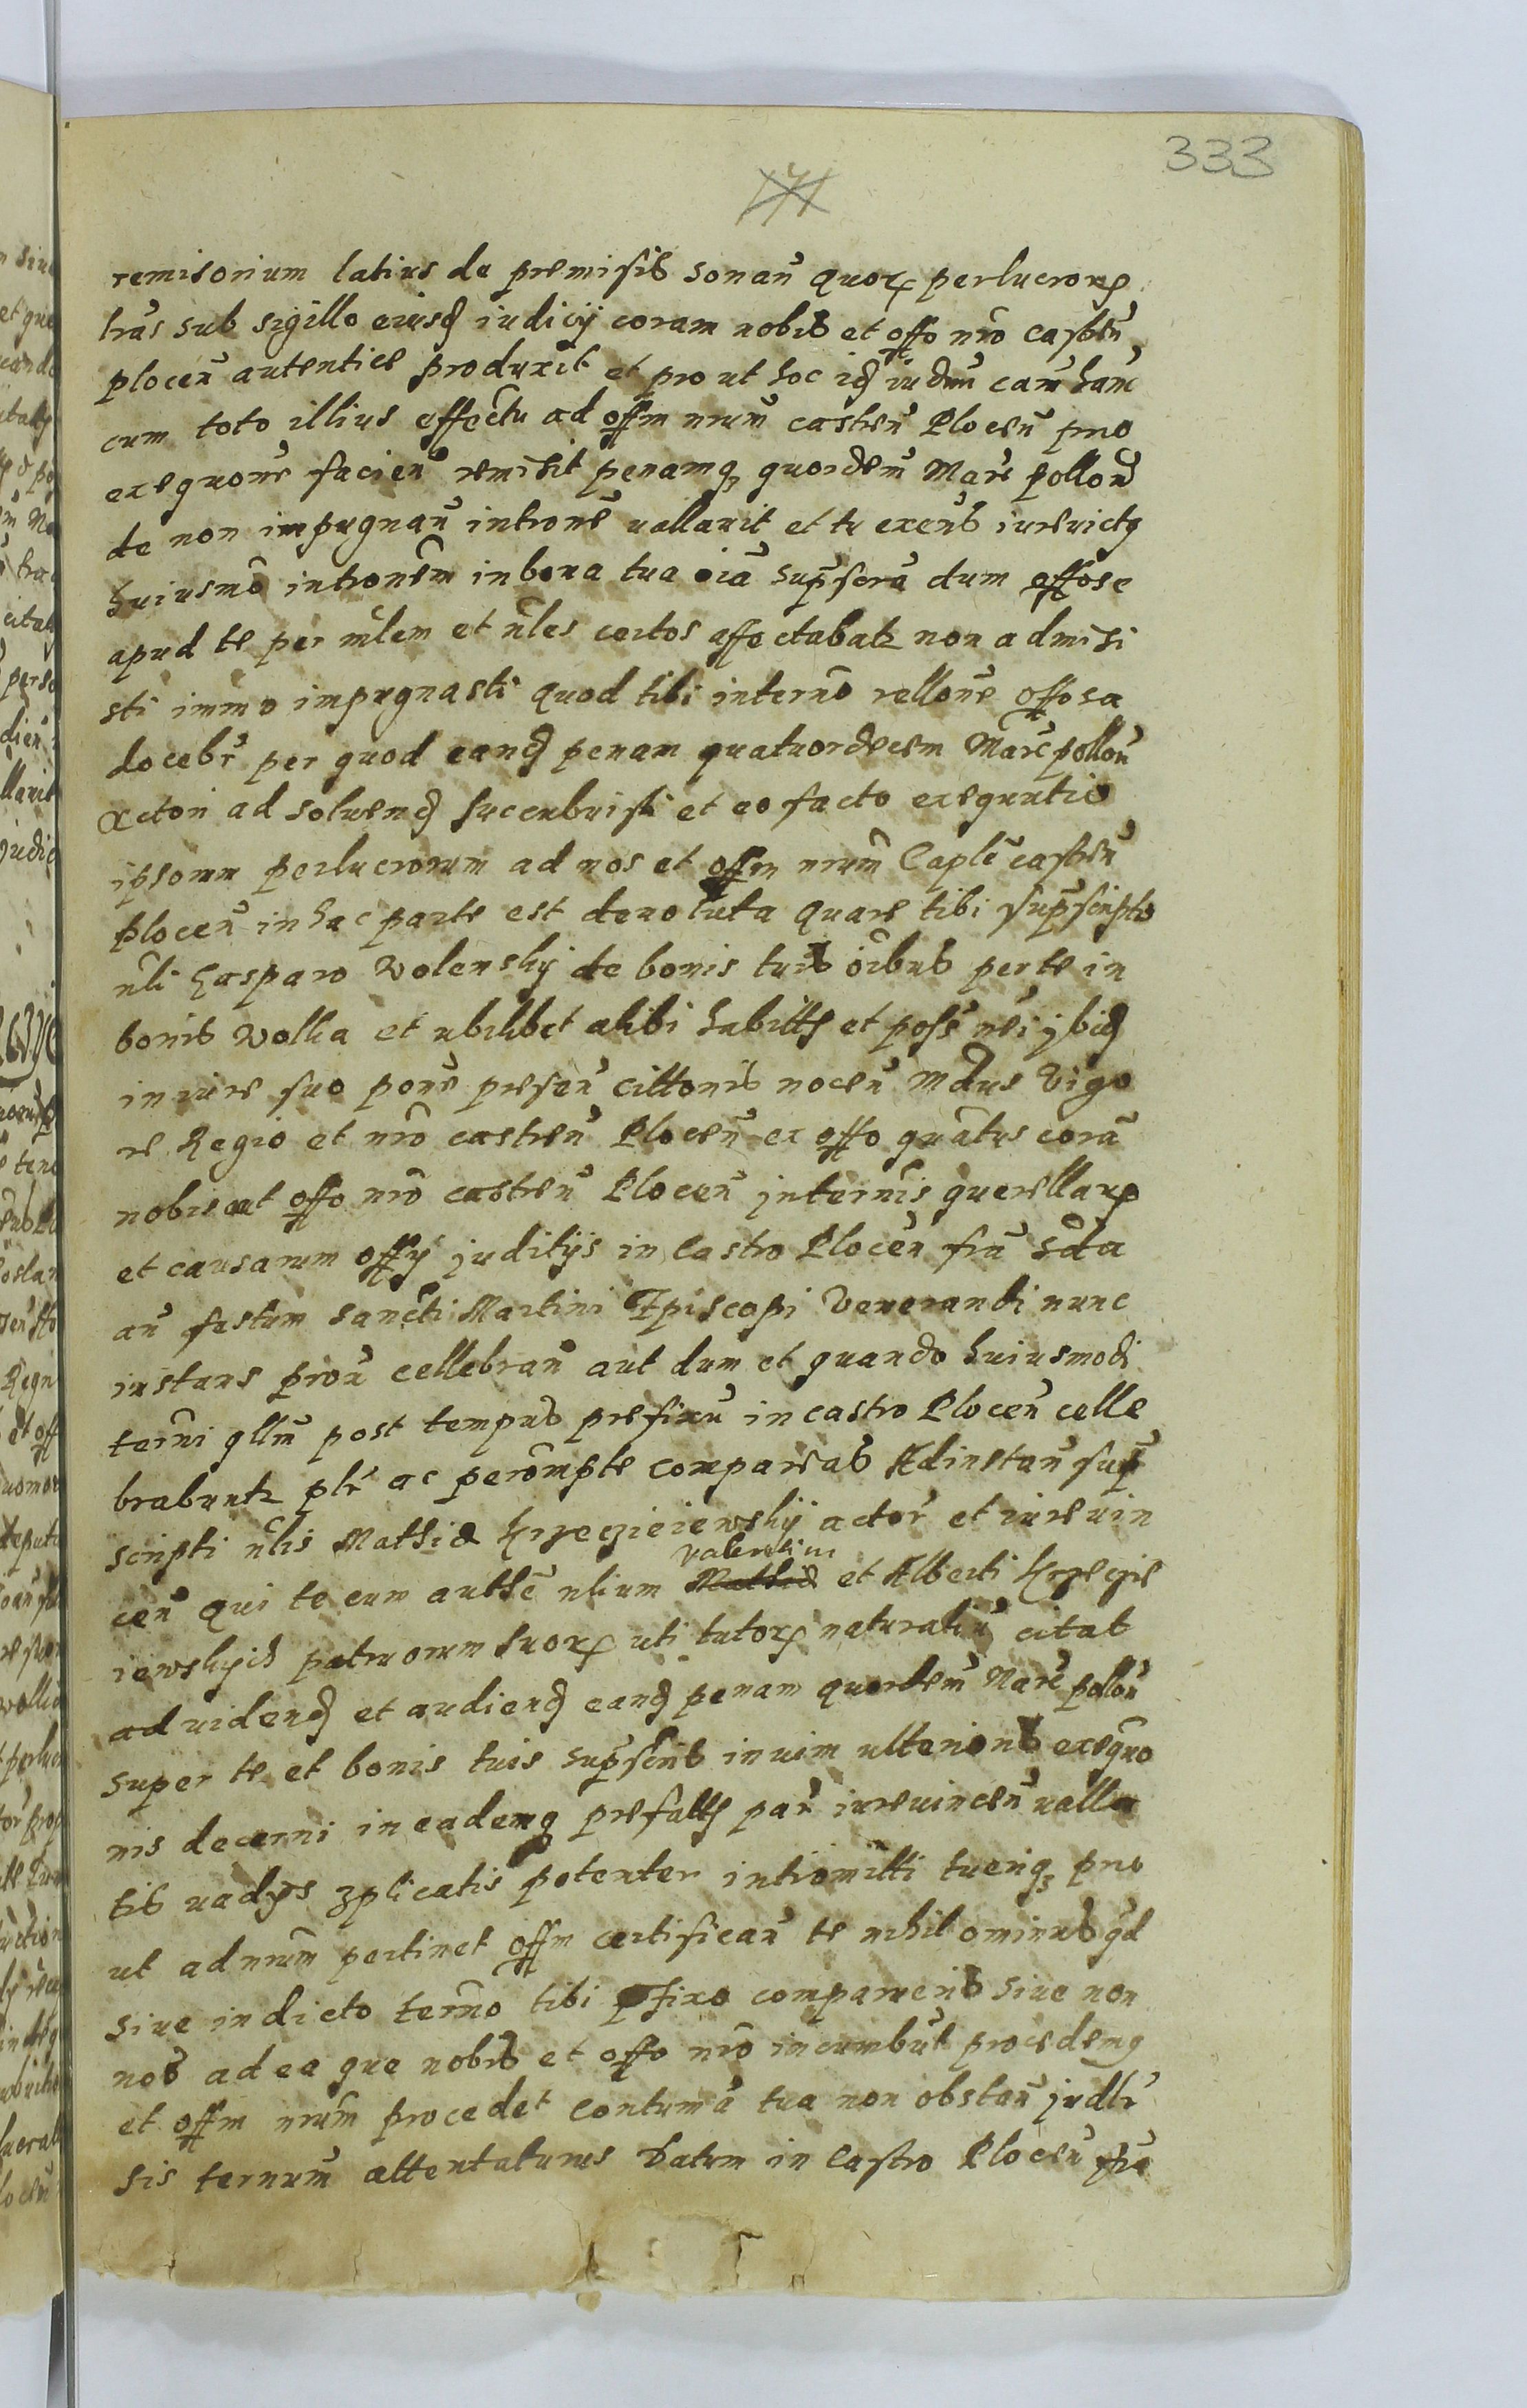 333
171
remisorium latius de premisis sonan̄ quor perlucror
lrās sub sigillo eiusd iudicij coram nobis et offo nr̄o castren̄
plocen̄ autentice produxit et pro ut hoc id iudm̄ cam̄ hanc
cum toto illius effectu ad offm nrum̄ castren̄ Plocen̄ pro
exequone facien̄ remisit penamq quordem̄ Marc pollon̄
de non impugnan̄ introne vallavit et tu exens iurevictq
huiusmō intronem̄ in bona tua oia supscra dum offose
apud te per mlem et nles certos affectabatr non admisi
sti immo impugnasti quod tibi intermo rellone offosa
docebr per quod eand penam quatuordecem Marc pollon̄
actori ad solvend sucenbuisti et eo facto exequutio
ipsorum perlucrorum ad nos et offm nrum̄ Caple castren̄
plocen̄ in hac parte est devoluta quare tibi supscripto
nli Gasparo Wolensky de bonis tuis oibus per te in
bonis Wolka et ubilibet alibi habitts et poss nei ybid
in iure suo pone presen̄ cittonis nocen̄ Mdnus Vigo
re Regio et nr̄o castren̄ Plocen̄ ex offo quātus corā
nobis et offo nr̄o castren̄ Plocen̄ in termis querellar
et causarum offy juditijs in Castro Plocen̄ fra 2da
an̄ festum Sancti Martini Episcopi Venerandi nunc
instans pron̄ cellebran̄ aut dum et quando huiusmodi
termi qllm̄ post tempus prefixu in castro Plocen̄ celle
brabuntr plr ac perompte compareas Ad instan̄ sup
scripti nlis Mathiæ Krzeczieiewsky actor et iurevin
cen̄ qui te cum authe nlium Valentini Mathiæ et Alberti Krzeczie
iewskych patruorum suor uti tutor naturaliu citat
ad vidend et audiend eand penam quordem̄ Marc pollon̄
super te et bonis tuis supscris in vim ulterioris exequo
nis decerni in eademq prefatts par iurevincen̄ valla
tis vadys zplicatis potenter intromitti tueriq pro
ut ad nrum̄ pertinet offm certifican̄ te nihilominus qd
sive in dicto termo tibi pfixo comparueris sive non
nos ad ea que nobis et offo nr̄o incumbut procedemq
et offm nrum̄ procedet contumā tua non obstan̄ judlr
sis ternum̄ attentaturus Datum in Castro Plocen̄ fra